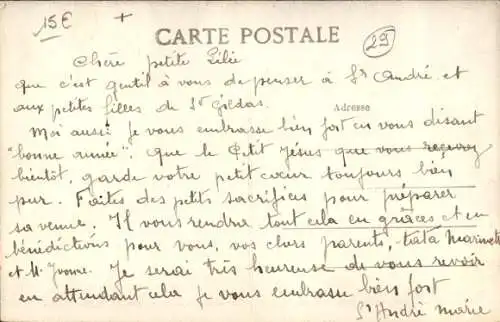 15€ +
29
CARTE POSTALE
Chère petite Lilie
que c'est gentil à vous de penser à Sr André, et
aux petites filles de St Gildas.
Adresse
Moi aussi je vous embrasse bien fort en vous disant
"bonne année". Que le Petit Jésus que vous recevrez
bientôt, garde votre petit cœur toujours bien
pur. Faites des petits sacrifices pour préparer
sa venue, Il vous rendra tout cela en grâces et en
bénédictions pour vous, vos chers parents, tata
et M. Yvonne. Je serai très heureuse de vous revoir
en attendant cela je vous embrasse bien fort
Sr André Marie